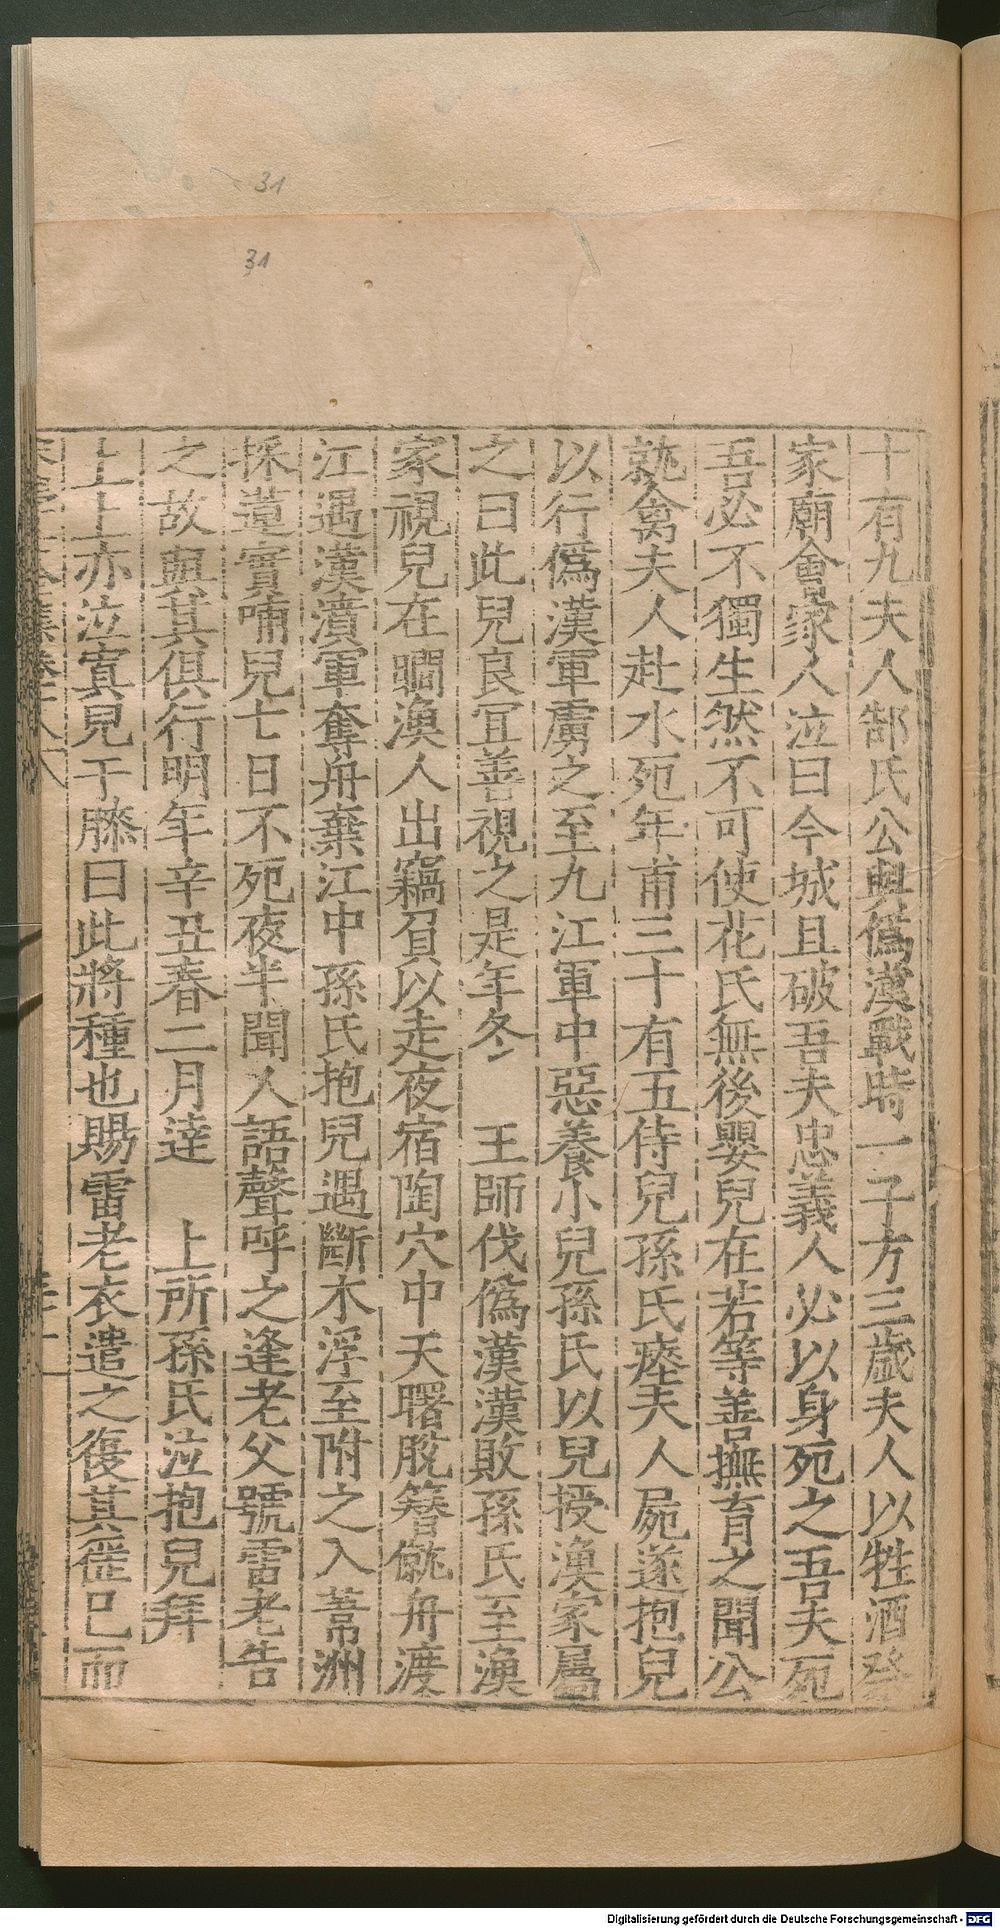 31
31
十有九夫人郜氏公與僞漢戰時一子方三歲夫人以牲酒祭
家廟會家人泣曰今城且破吾夫忠義人必以身死之吾夫死
吾必不獨生然不可使花氏無後嬰兒在若等善撫育之聞公
就禽夫人赴水死年甫三十有五侍兒孫氏瘞夫人屍遂抱兒
以行僞漢軍虜之至九江軍中惡養小兒孫氏以兒授漁家屬
之曰此兒良冝善視之是年冬 王師伐僞漢漢敗孫氏至漁
家視兒在矙漁人出竊負以走夜宿陶穴中天曙脫簪僦舟渡
江遇漢潰軍奪舟棄江中孫氏抱兒遇斷木浮至附之入葦洲
採蓮實哺兒七日不死夜半聞人語聲呼之逢老父號雷老告
之故與其俱行明年辛丑春二月達 上所孫氏泣抱兒拜
上上亦泣寘兒于膝曰此將種也賜雷老衣遣之復其徭已而
Digitalisierung gefördert durch die Deutsche Forschungsgemeinschaft - DFG